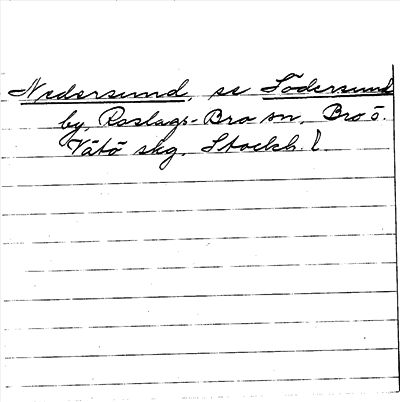 Nedersund, se Södersund
by, Roslags-Bro sn, Bro ö.
Vätö skg. Stockh. l.